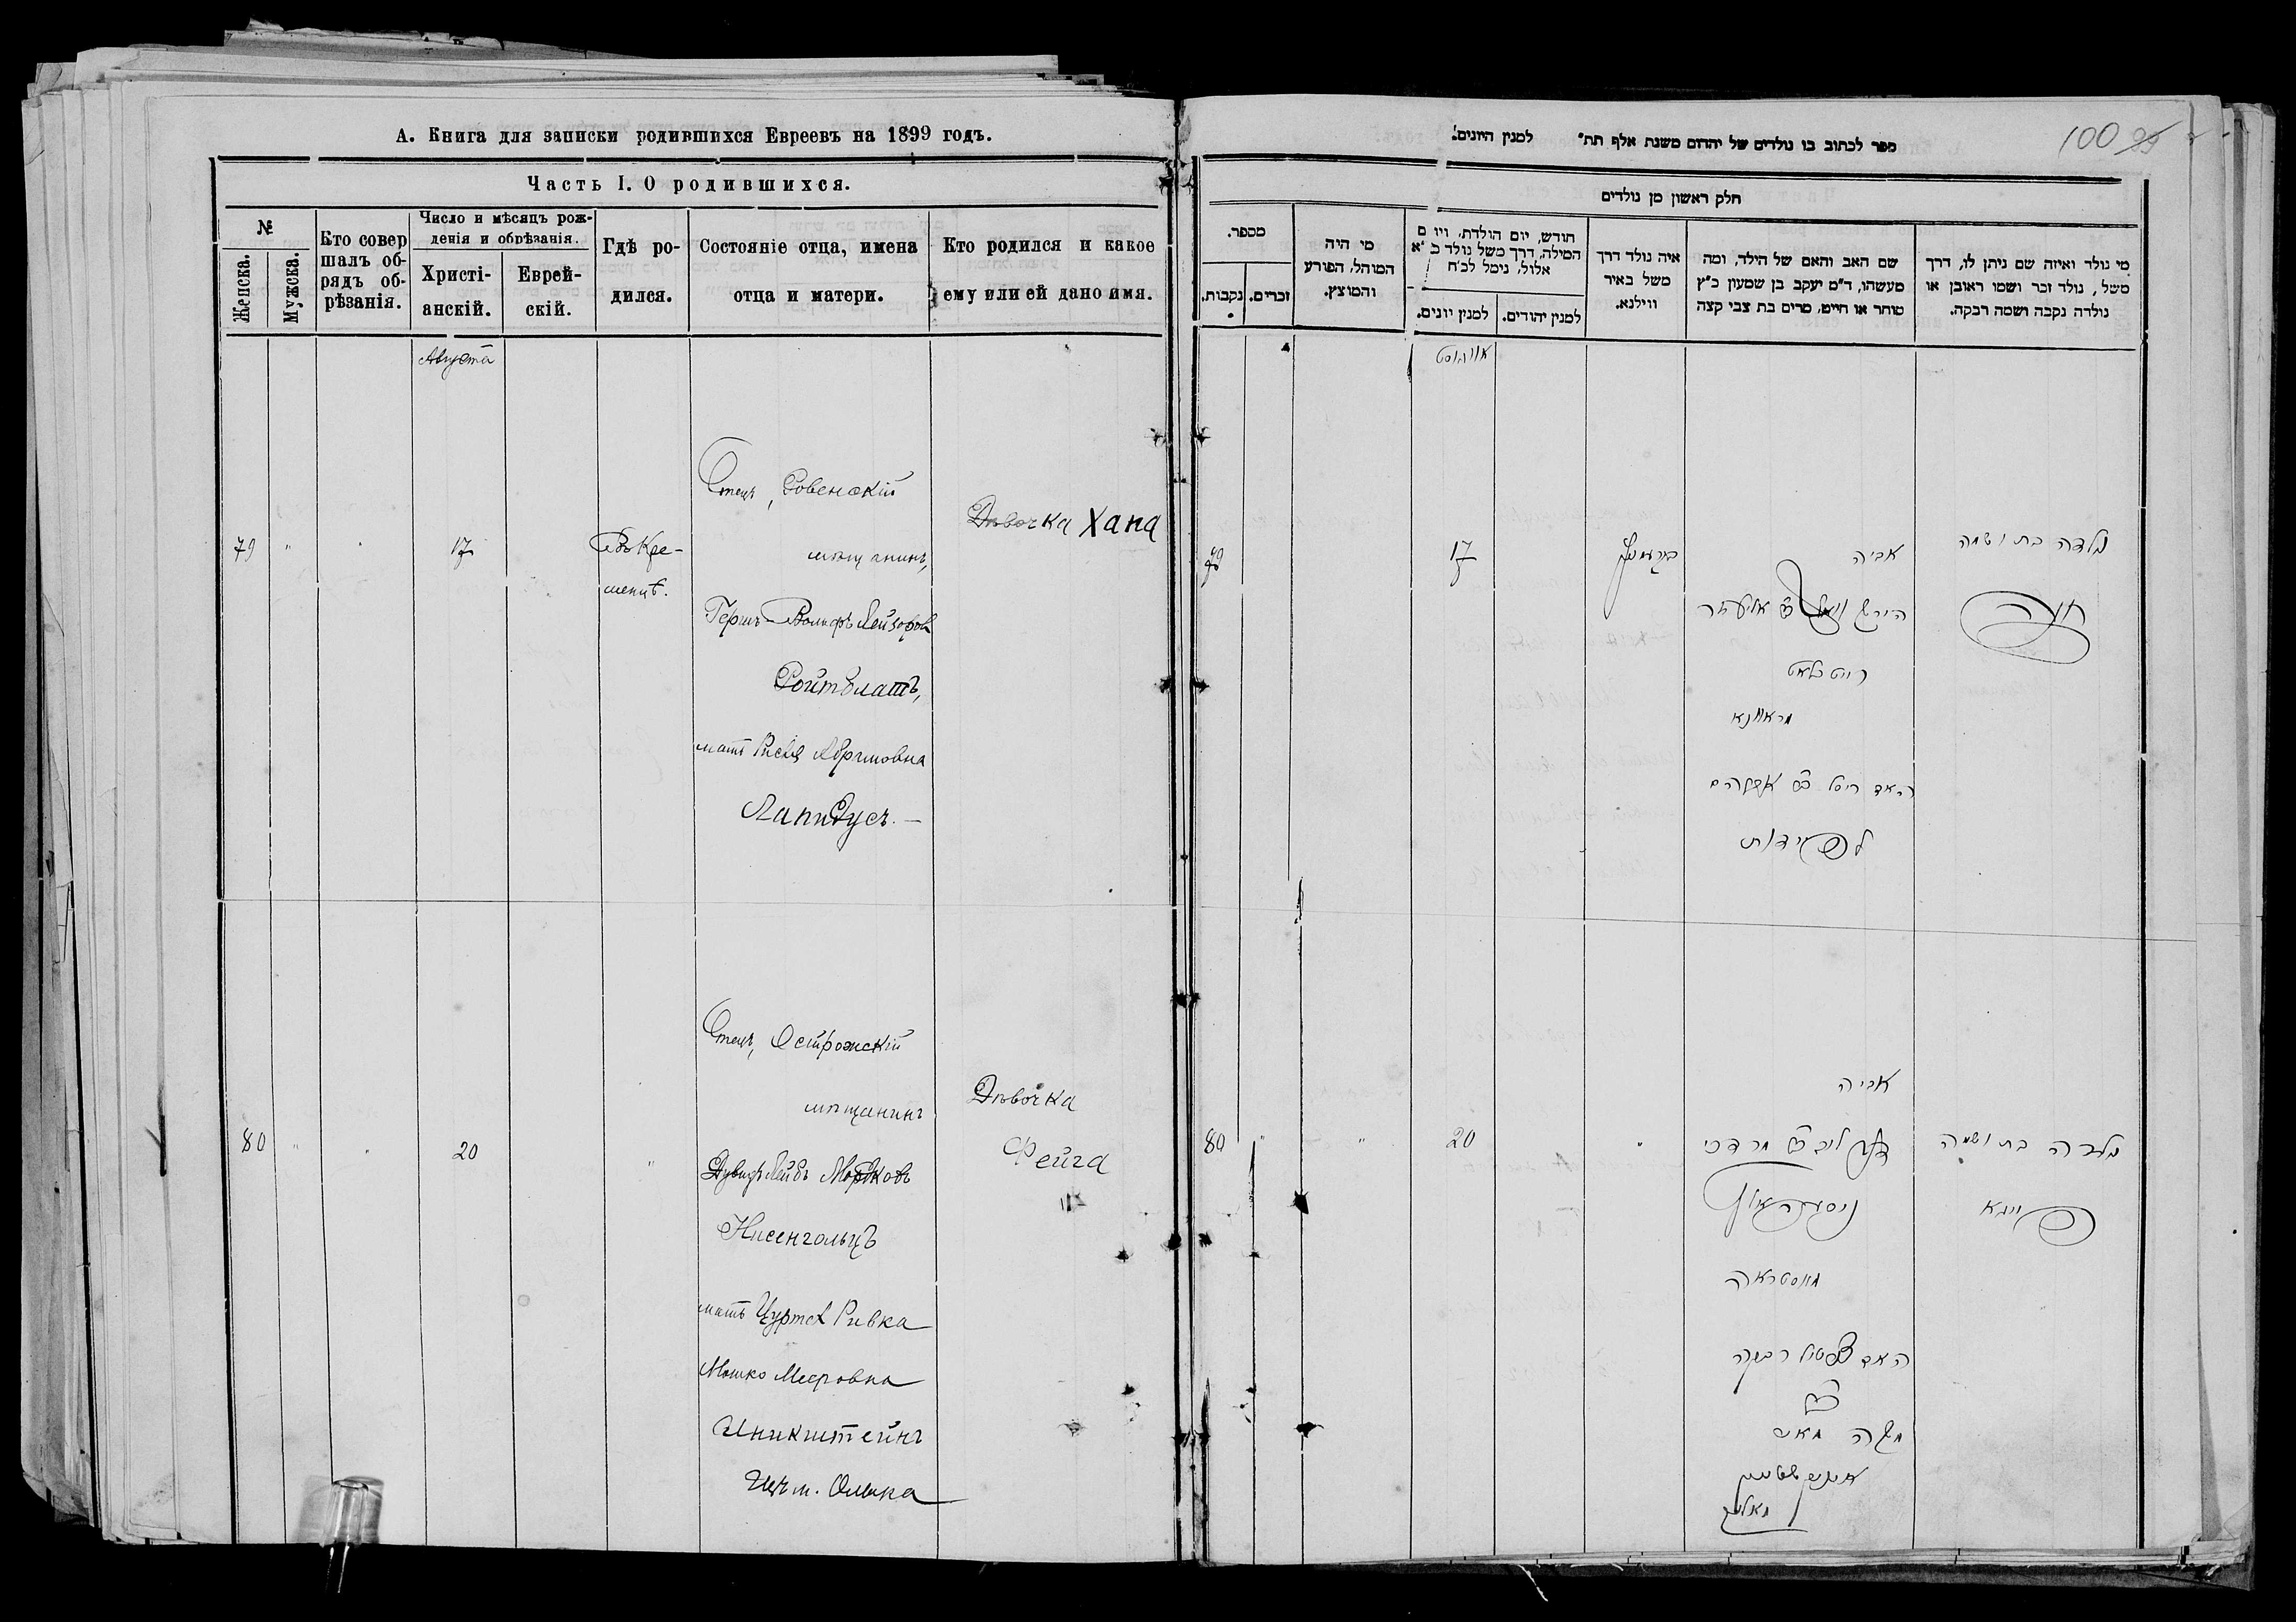 А. Книга для записки родившихся Евреевъ на 1899 годъ.
Часть I. О родившихся.
№
Женска.
Мужска.
Кто совер
шалъ об-
рядъ об-
рѣзанія.
Число и мѣсяцъ рож-
денія и обрѣзанія.
Христі-
анскій.
Еврей-
скій.
Гдѣ ро-
дился.
Состояніе отца, имена
отца и матери.
Кто родился и какое
ему или ей дано имя.
Августа
79 " " 17
Въ Кре-
менцѣ.
Отецъ, Ровенскій
мѣщанинъ,
Гершъ-Вольфъ Лейзоровъ
Ройтблатъ,
мать Абрамовна
Лапидусъ. —
Дѣвочка Хана
80 " " 20 "
Отецъ, Острожскій
мѣщанинъ
Лейбъ Мордковъ
Нисенгольцъ
мать Ривка
Мошко Мееровна
Дѣвочка
Фейга
ספר לכתוב בו נולדים של יהדום משנת אלף תת״ למנין היונים.
100 99
חלק ראשון מן נולדים
מספר.
נקבות.
זכרים.
מי היה
המוהל, הפורע
והמוצץ.
חודש, יום הולדת, ויום
המילה, דרך משל נולד כ״א
אלול, נימל לכ״ח
למנין יונים.
למנין יהודים.
איה נולד דרך
משל באיר
ווילנא.
שם האב והאם של הילד, ומה
מעשהו, ד״מ יעקב בן שמעון כ״ץ
סוחר או חייט, מרים בת צבי קצה
מי נולד ואיזה שם ניתן לו, דרך
משל, נולד זכר ושמו ראובן או
נולדה נקבה ושמה רבקה.
אוגוסט
79 17
אביה
הירש וואלף ב״ר אליעזר
רייטבלאט
מראוונא
האם ריסל ב״ר אברהם
לפידות
נולדה בת ושמה
חנה
80 " " 20 "
אביה
דוד ליב ב״ר מרדכי
מאוסטראה
האם רבקה
משה מאיר
נולדה בת ושמה
פייגא